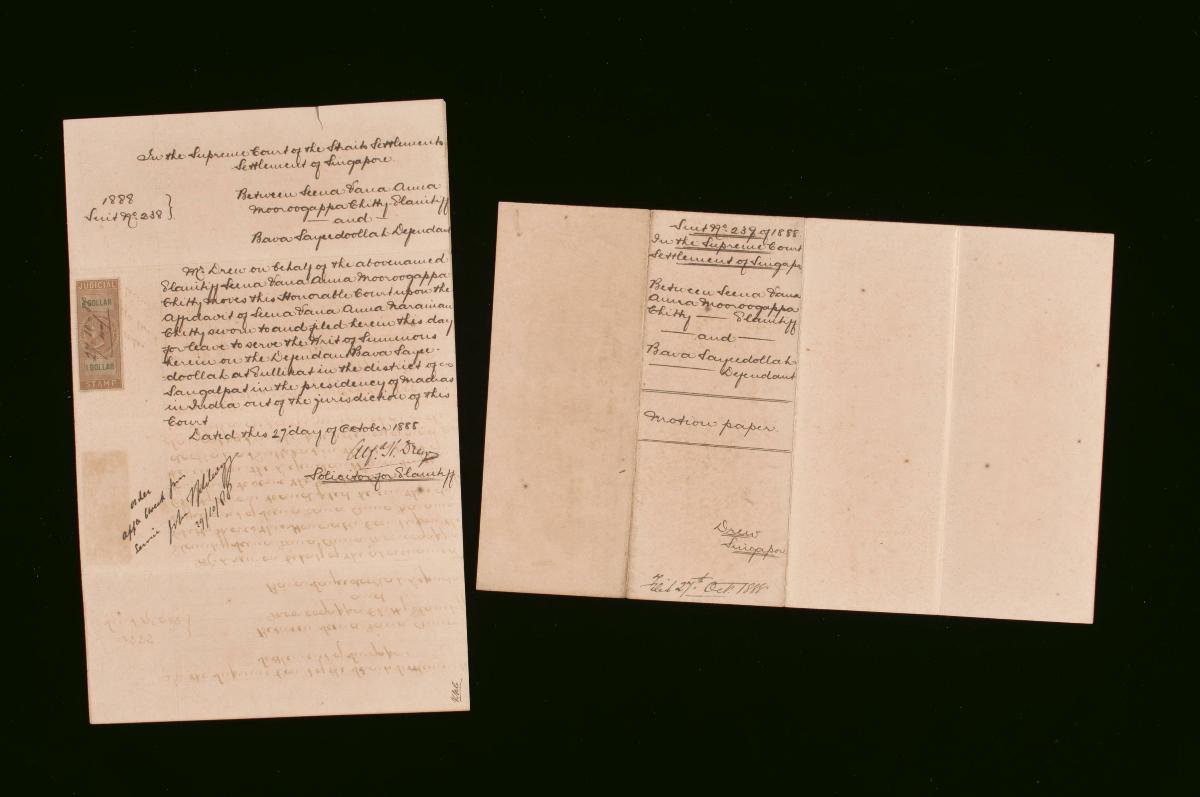 In the Supreme Court of the Straits Settlements
Settlement of Singapore.
1888
Suit No 238
Between Seena Vana Anna
Mooroogappa Chitty Plaintiff
and
Bava Sayedoollah Defendant
Mr Drew on behalf of the abovenamed
Plaintiff Seena Vana Anna Mooroogappa
Chitty moves this Honorable Court upon the
Affidavit of Seena Vana Anna Narainan
Chitty sworn to and filed herein this day
for leave to serve the Writ of Summons
herein on the Defendant Bava Sayee-
doollah at Pullicat in the district of
Sangalpat in the presidency of Madras
in India out of the jurisdiction of this
Court
Dated this 27 day of October 1888
Alf. H. Drew
Solicitor for Plaintiff
JUDICIAL
DOLLAR
1 DOLLAR
STAMP
order
service
29/10/88
Suit No 239 of 1888.
In the Supreme Court
Settlement of Singapo
Between Seena Vana
Anna Mooroogappa
Chitty — Plaintiff
— and —
Bava Sayeedollah
Defendant
Motion paper.
Drew
Singapore
Filed 27th Oct. 1888